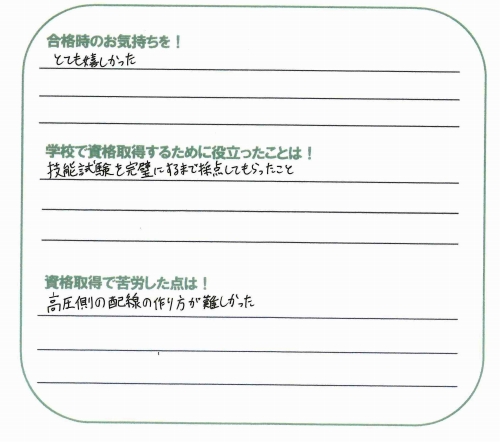 合格時のお気持ちを！
とても嬉しかった
学校で資格取得するために役立ったことは！
技能試験を完璧にするまで採点してもらったこと
資格取得で苦労した点は！
高圧側の配線の作り方が難しかった